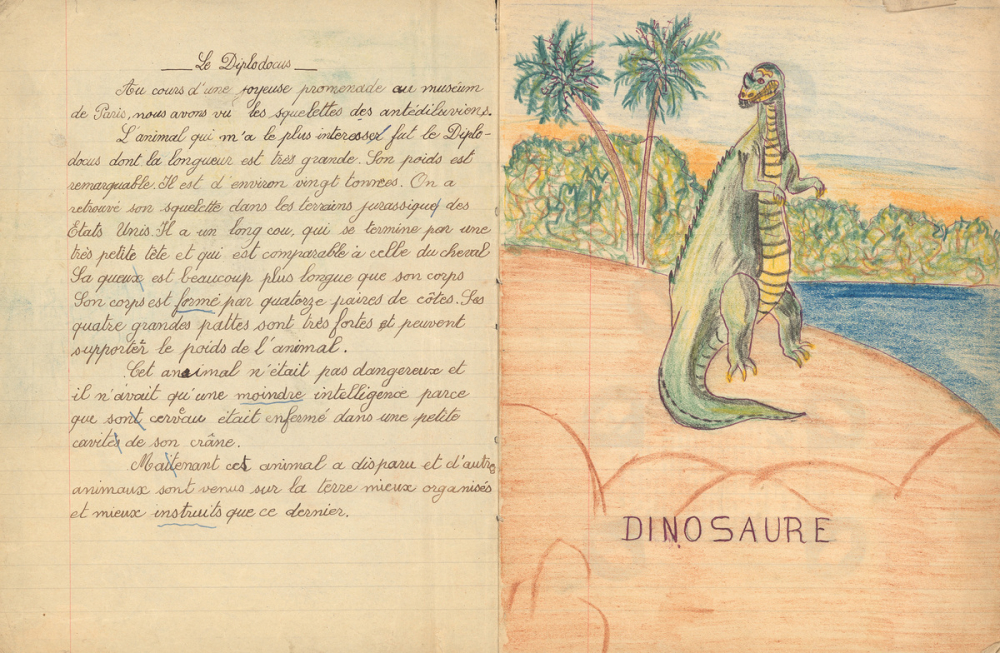 Le Diplodocus
Au cours d'une joyeuse promenade au muséum
de Paris, nous avons vu les squelettes des antédiluviens.
L'animal qui m'a le plus intéresser fut le Diplo-
docus dont la longueur est très grande. Son poids est
remarquable. Il est d'environ vingt tonnes. On a
retrouvé son squelette dans les terrains jurassiques des
États Unis. Il a un long cou, qui se termine par une
très petite tête et qui est comparable à celle du cheval
Sa queux est beaucoup plus longue que son corps
Son corps est formé par quatorze paires de côtes. Ses
quatre grandes pattes sont très fortes et peuvent
supporter le poids de l'animal.
Cet animal n'était pas dangereux et
il n'avait qu'une moindre intelligence parce
que sont cerveau était enfermé dans une petite
cavités de son crâne.
Maitenant cet animal a disparu et d'autres
animaux sont venus sur la terre mieux organisés
et mieux instruits que ce dernier.
DINOSAURE